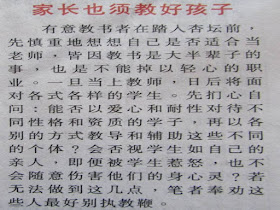 家长也须教好孩子
有意教书者在踏人杏坛前，
先慎重地想想自己是否适合当
老师，皆因教书是大半辈子的
事，也是不能掉以轻心的职
业。一旦当上教师，日后将面
对各式各样的学生。先扪心自
问：能否以爱心和耐性对待不
同性格和资质的学子，再以各
别的方式教导和辅助这些不同
的个体？会否视学生如自己的
亲人，即便被学生惹怒，也不
会随意伤害他们的身心灵？若
无法做到这几点，笔者奉劝这
些人最好别执教鞭。